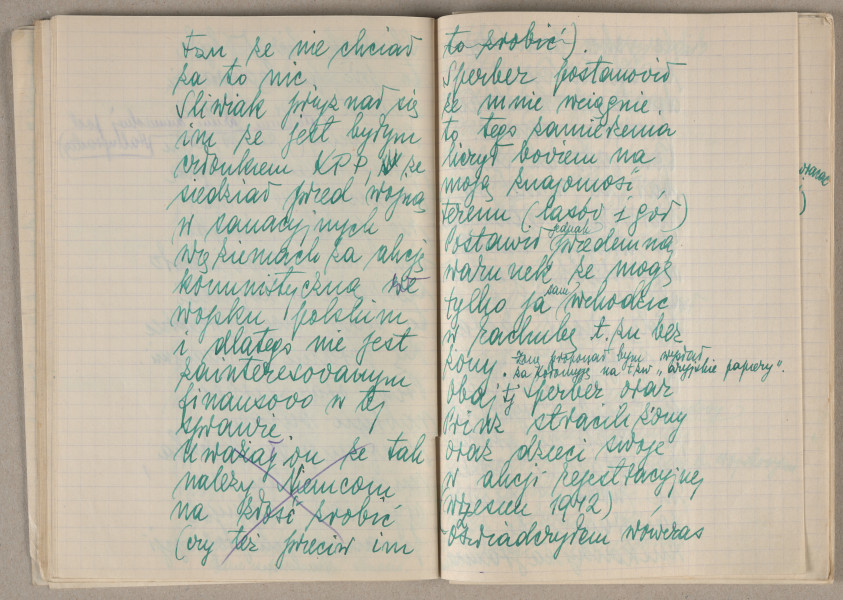 tam, że nie chciał
za to nic
Śliwiak przyznał się
im że jest byłym
członkiem KPP, że
siedział przed wojną
w sanacyjnych
więzieniach za akcję
komunistyczną we
wojsku polskim
i dlatego nie jest
zainteresowanym
finansowo w tej
sprawie
Uważaj on że tak
należy Niemcom
na złość zrobić
(czy też przeciw im
to zrobić).
Sperber postanowił
że mnie wciągnie
to tego zamierzenia
liczył bowiem na
moją znajomość
terenu (lasów i gór)
Postawił jednak przedemną
warunek że mogę
tylko ja sam wchodzić
w rachubę t.zn bez
żony. Żonę proponował bym wysłał
za Kołomyję na t.zw „aryjskie papiery".
Obaj tj Sperber oraz
Prinz stracili żony
oraz dzieci swoje
w akcji rejestracyjnej
(wrzesień 1942)
Oświadczyłem wówczas